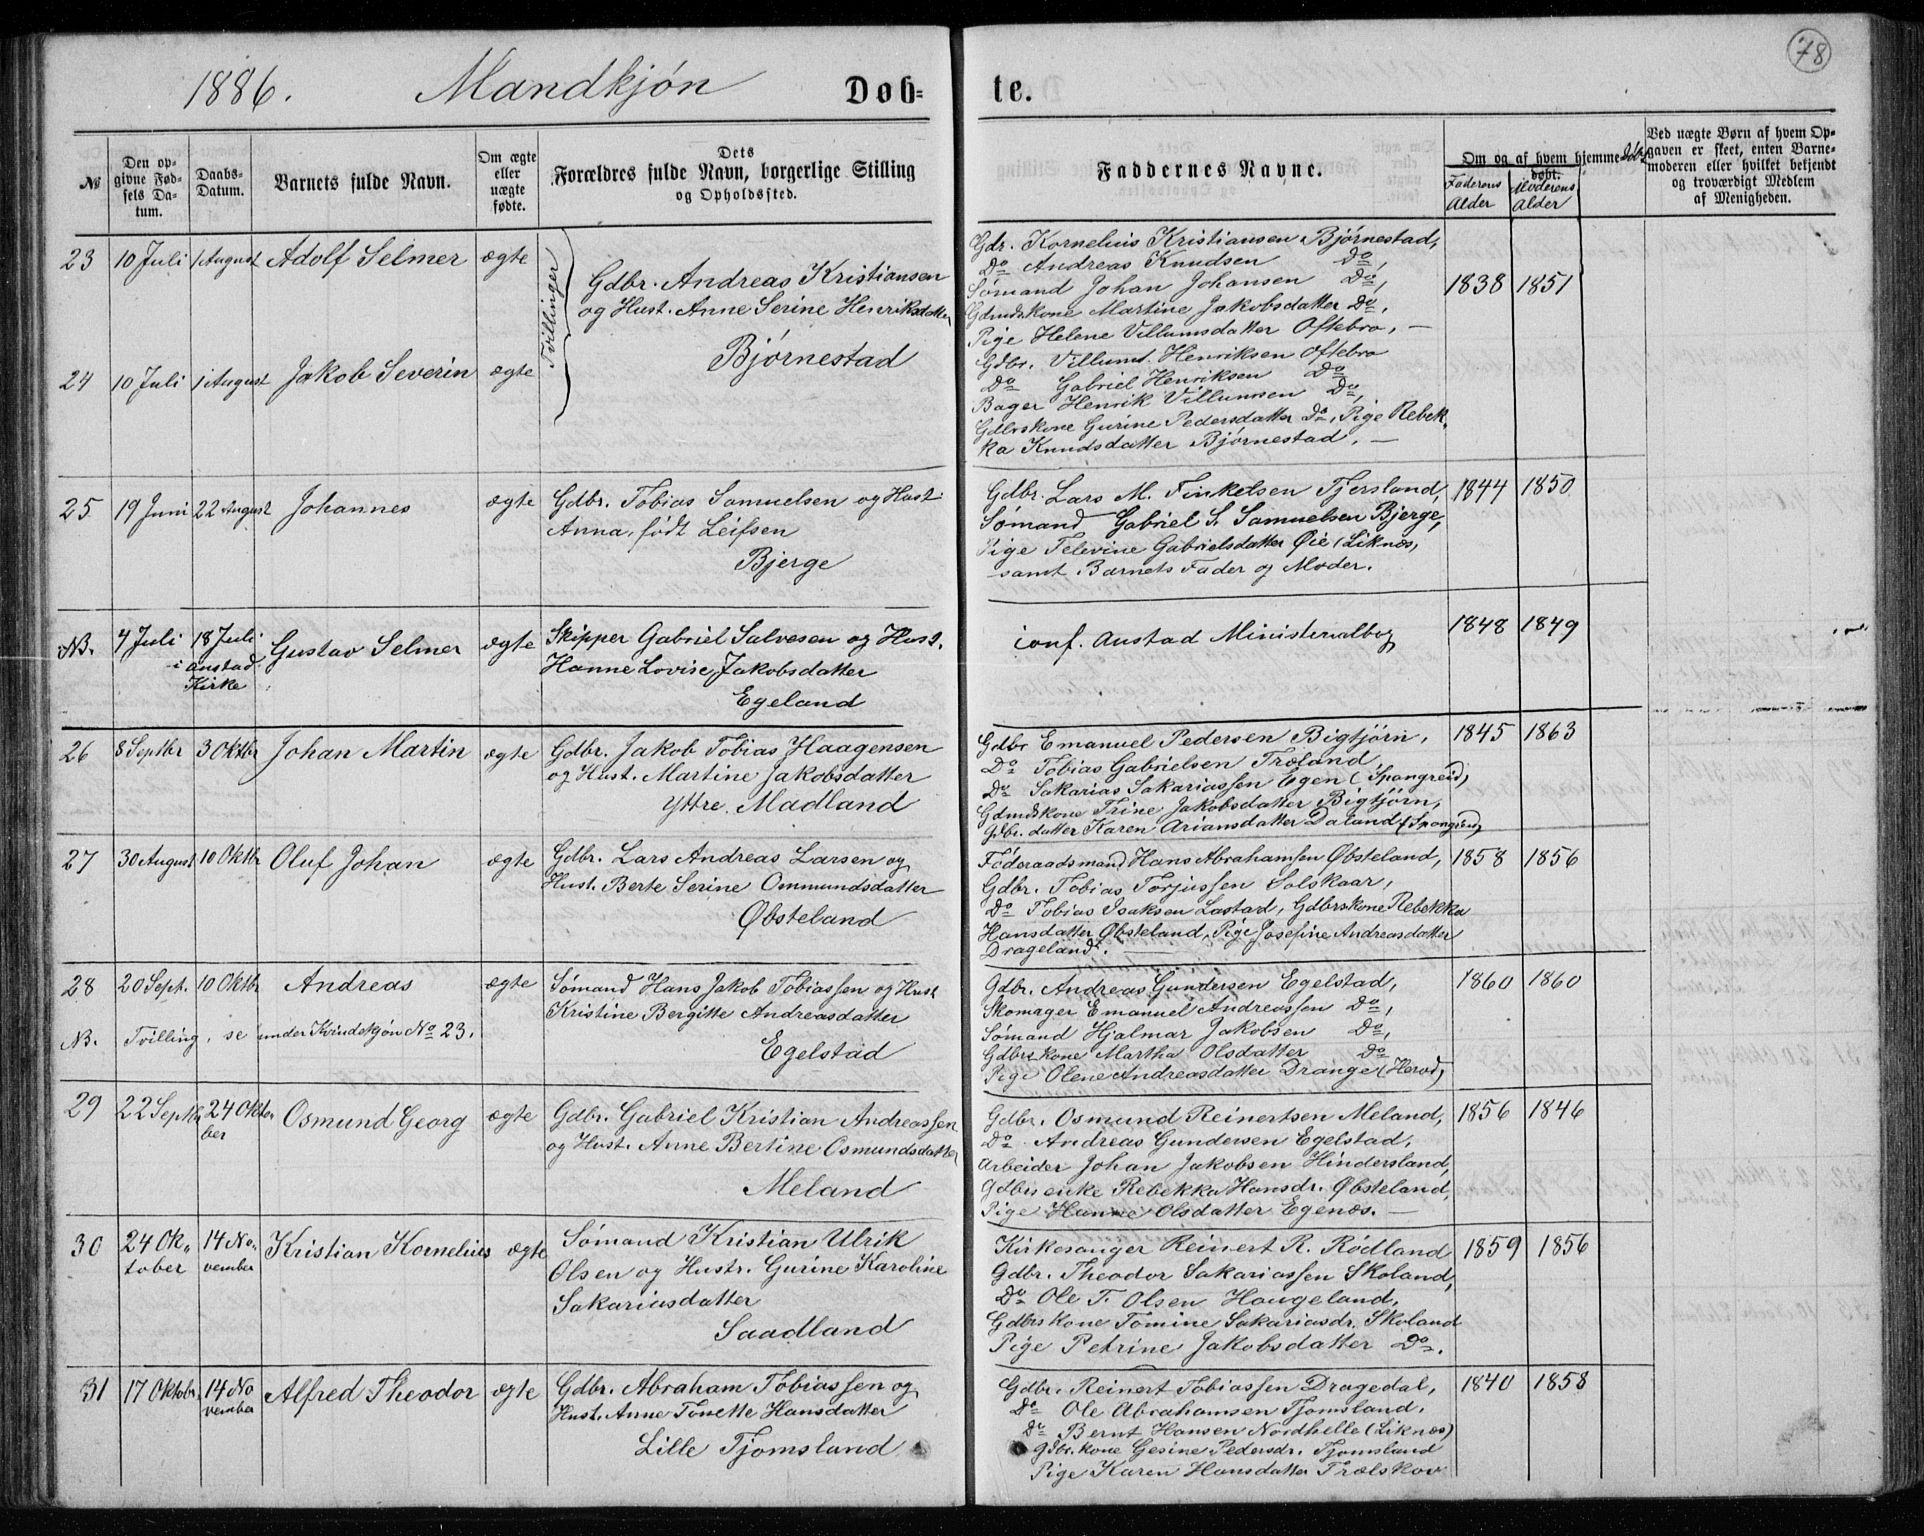 78
1886. Mandkjøn Døb= te.
№
Den op-
givne Fød-
sels Da-
tum.
Daabs-
Datum.
Barnets fulde Navn.
Om ægte
eller
uægte
fødte.
Dets
Forældres fulde Navn, borgerlige Stilling
og Opholdssted.
Faddernes Navne.
Om og af hvem hjemmedøbt
døbt.
Faderens
Alder
Moderens
Alder
Ved uægte Børn af hvem Op-
gaven er skeet, enten Barne-
moderen eller hvilket bekjendt
og troværdigt Medlem
af Menigheden.
23 10 Juli 1 August Adolf Selmer ægte
Tvillinger
Gdbr. Andreas Kristiansen
og Hust. Anne Serine Henriksdatter
Bjørnestad
24 10 Juli 1 August Jakob Severin ægte
Gdr. Kornelius Kristiansen Bjørnestad,
Do Andreas Knudsen Do,
Sømand Johan Johansen Do,
Gdmdskone Martine Jakobsdatter Do,
Pige Helene Villumsdatter Oftebro, —
Gdbr. Villum Henriksen Oftebro
Do Gabriel Henriksen Do
Bager Henrik Villumsen Do,
Gdbrskone Gurine Pedersdatter Do, Pige Rebek-
ka Knudsdatter Bjørnestad, —
1838 1851
25 19 Juni 22 August Johannes ægte
Gdbr. Tobias Samuelsen og Hust.
Anna, født Leifsen
Bjerge
Gdbr. Lars M. Finkelsen Tjersland,
Sømand Gabriel S. Samuelsen Bjerge,
Pige Televine Gabrielsdatter Øie (Liknes)
samt Barnets Fader og Moder.
1844 1850
NB. 4 Juli 18 Juli
i Austad
Kirke
Gustav Selmer ægte
Skipper Gabriel Salvesen og Hust.
Hanne Lovise Jakobsdatter
Egeland
conf. Austad Ministerialbog
1848 1849
26 8 Septbr 3 Oktbr Johan Martin ægte
Gdbr. Jakob Tobias Haagensen
og Hust. Martine Jakobsdatter
Yttre Madland
Gdbr Emanuel Pedersen Bigtjørn,
Do Tobias Gabrielsen Træland,
Do Sakarias Sakariassen Egen (Spangreid)
Gdmdskone Trine Jakobsdatter Bigtjørn,
Gdbr. datter Karen Ariansdatter Daland (Spangreid)
1845 1863
27 30 August 10 Oktbr Oluf Johan ægte
Gdbr. Lars Andreas Larsen og
Hust. Berte Serine Ommundsdatter
Øbsteland
Føderaadsmand Hans Abrahamsen Øbsteland,
Gdbr. Tobias Torjussen Solskaar,
Do Tobias Isaksen Lastad, Gdbrskone Rebekka
Hansdatter Øbsteland, Pige Josefine Andreasdatter
Drageland.
1858 1856
28 20 Sept. 10 Oktbr Andreas ægte
NB. Tvilling, se under Kvindekjøn No 23.
Sømand Hans Jakob Tobiassen og Hust
Kristine Bergitte Andreasdatter
Egelstad
Gdbr. Andreas Gundersen Egelstad,
Skomager Emanuel Andreassen Do,
Sømand Hjalmar Jakobsen Do,
Gdbrskone Martha Olsdatter Do
Pige Olene Andreasdatter Drange (Herod)
1860 1860
29 22 Septbr 24 Okto-
ber
Osmund Georg ægte
Gdbr. Gabriel Kristian Andreassen
og Hust. Anne Bertine Osmundsdatter
Meland
Gdbr. Osmund Reinertsen Meland,
Do Andreas Gundersen Egelstad,
Arbeider Johan Jakobsen Hindersland,
Gdbrsenke Rebekka Hansdr. Øbsteland,
Pige Hanne Olsdatter Egenæs. —
1856 1846
30 24 Ok-
tober
14 No-
vember
Kristian Kornelius ægte
Sømand Kristian Ulrik
Olsen og Hustr. Gurine Karoline
Sakariasdatter
Saadland
Kirkesanger Reinert R. Rødland
Gdbr. Theodor Sakariassen Skoland,
Do Ole T. Olsen Haugeland,
Gdbrskone Tomine Sakariasdr. Skoland
Pige Petrine Jakobsdatter Do.
1859 1856
31 17 Oktobr 14 No
vember
Alfred Theodor ægte
Gdbr. Abraham Tobiassen og
Hust. Anne Tonette Hansdatter
Lille Tjomsland
Gdbr. Reinert Tobiassen Dragedal,
Do Ole Abrahamsen Tjomsland,
Do Bernt Hansen Nordhelle (Liknes)
Gdbr.kone Gesine Pedersdr. Tjomsland
Pige Karen Hansdatter Trælskov
1840 1858